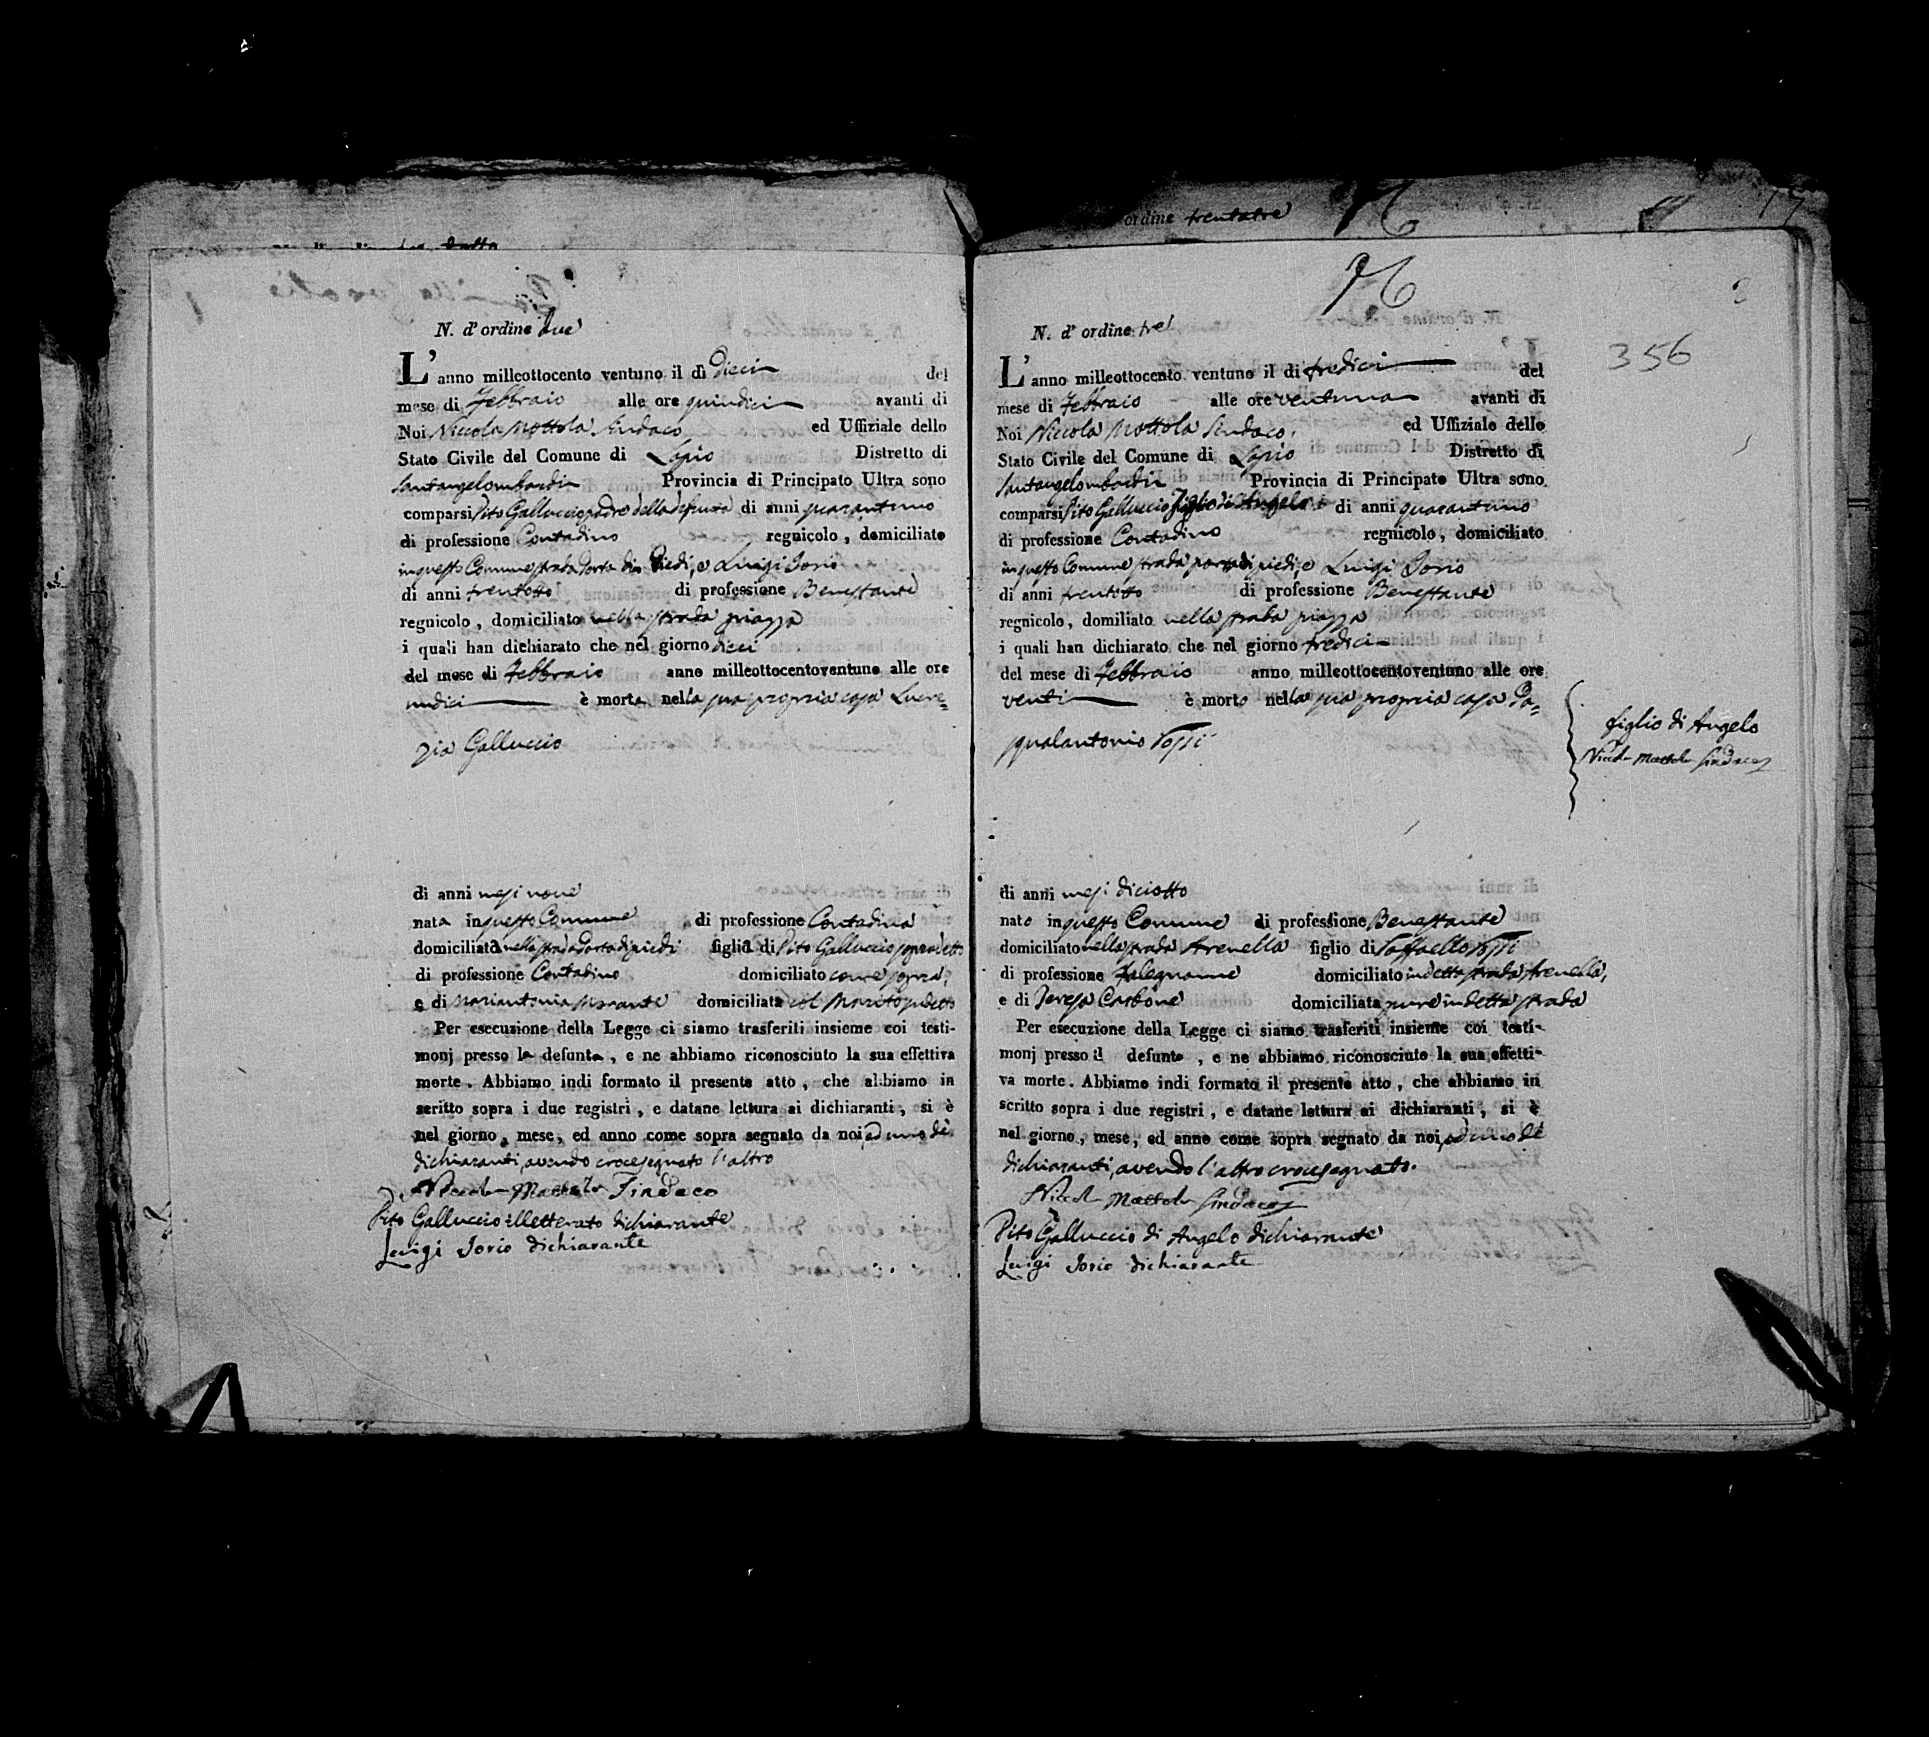 N. d' ordine due
L' anno milleottocento ventuno il dì Dieci del
mese di Febbraio alle ore quindici avanti di
Noi Niccola Mottola Sindaco ed Uffiziale dello
Stato Civile del Comune di Lapio Distretto di
Santangelombardi Provincia di Principato Ultra sono
comparsi Vito Galluccio padre della defunta di anni quarantuno
di professione Contadino regnicolo, domiciliato
in questo Comune strada Porta di Piedi, e Luigi Iorio
di anni trentotto di professione Benestante
regnicolo, domiciliato nella strada piazza
i quali han dichiarato che nel giorno dieci
del mese di Febbraio anno milleottocentoventuno alle ore
undici è morta nella sua propria casa Lucre=
zia Galluccio
di anni mesi nove
nata in questo Comune di professione Contadina
domiciliata nella strada Porta di piedi figlia di Vito Galluccio sopradetto
di professione Contadino domiciliato come sopra,
e di Mariantonia Morante domiciliata col Marito sudetto
Per esecuzione della Legge ci siamo trasferiti insieme coi testi-
monj presso la defunta, e ne abbiamo riconosciuto la sua effettiva
morte. Abbiamo indi formato il presente atto, che abbiamo in
scritto sopra i due registri, e datane lettura ai dichiaranti, si è
nel giorno, mese, ed anno come sopra segnato da noi, ed uno de'
dichiaranti, avendo crocesegnato l'altro
Niccola Mottola Sindaco
Vito Galluccio illetterato dichiarante
Luigi Iorio dichiarante
ordine trentatre
17
76
356
N. d' ordine tre
L' anno milleottocento ventuno il dì tredici del
mese di Febbraio alle ore ventuna avanti di
Noi Niccola Mottola Sindaco ed Uffiziale dello
Stato Civile del Comune di Lapio Distretto di
Santangelombardi Provincia di Principato Ultra sono
comparsi Vito Galluccio figlio di Angelo di anni quarantuno
di professione Contadino regnicolo, domiciliato
in questo Comune strada porta di piedi, e Luigi Iorio
di anni trentotto di professione Benestante
regnicolo, domiliato nella strada piazza
i quali han dichiarato che nel giorno tredici
del mese di Febbraio anno milleottocentoventuno alle ore
venti è morto nella sua propria casa Pa=
squalantonio Rossi
figlio di Angelo
Niccola Mottola Sindaco
di anni mesi diciotto
nato in questo Comune di professione Benestante
domiciliato nella strada Arenella figlio di Raffaello Rossi
di professione Falegname domiciliato in detta strada Arenella,
e di Teresa Carbone domiciliata pure in detta strada
Per esecuzione della Legge ci siamo trasferiti insieme coi testi-
monj presso il defunto, e ne abbiamo riconosciuto la sua effetti-
va morte. Abbiamo indi formato il presente atto, che abbiamo in
scritto sopra i due registri, e datane lettura ai dichiaranti, si è
nel giorno, mese, ed anno come sopra segnato da noi, ed uno de'
dichiaranti, avendo l'altro crocesegnato.
Niccola Mottola Sindaco
Vito Galluccio di Angelo dichiarante
Luigi Iorio dichiarante